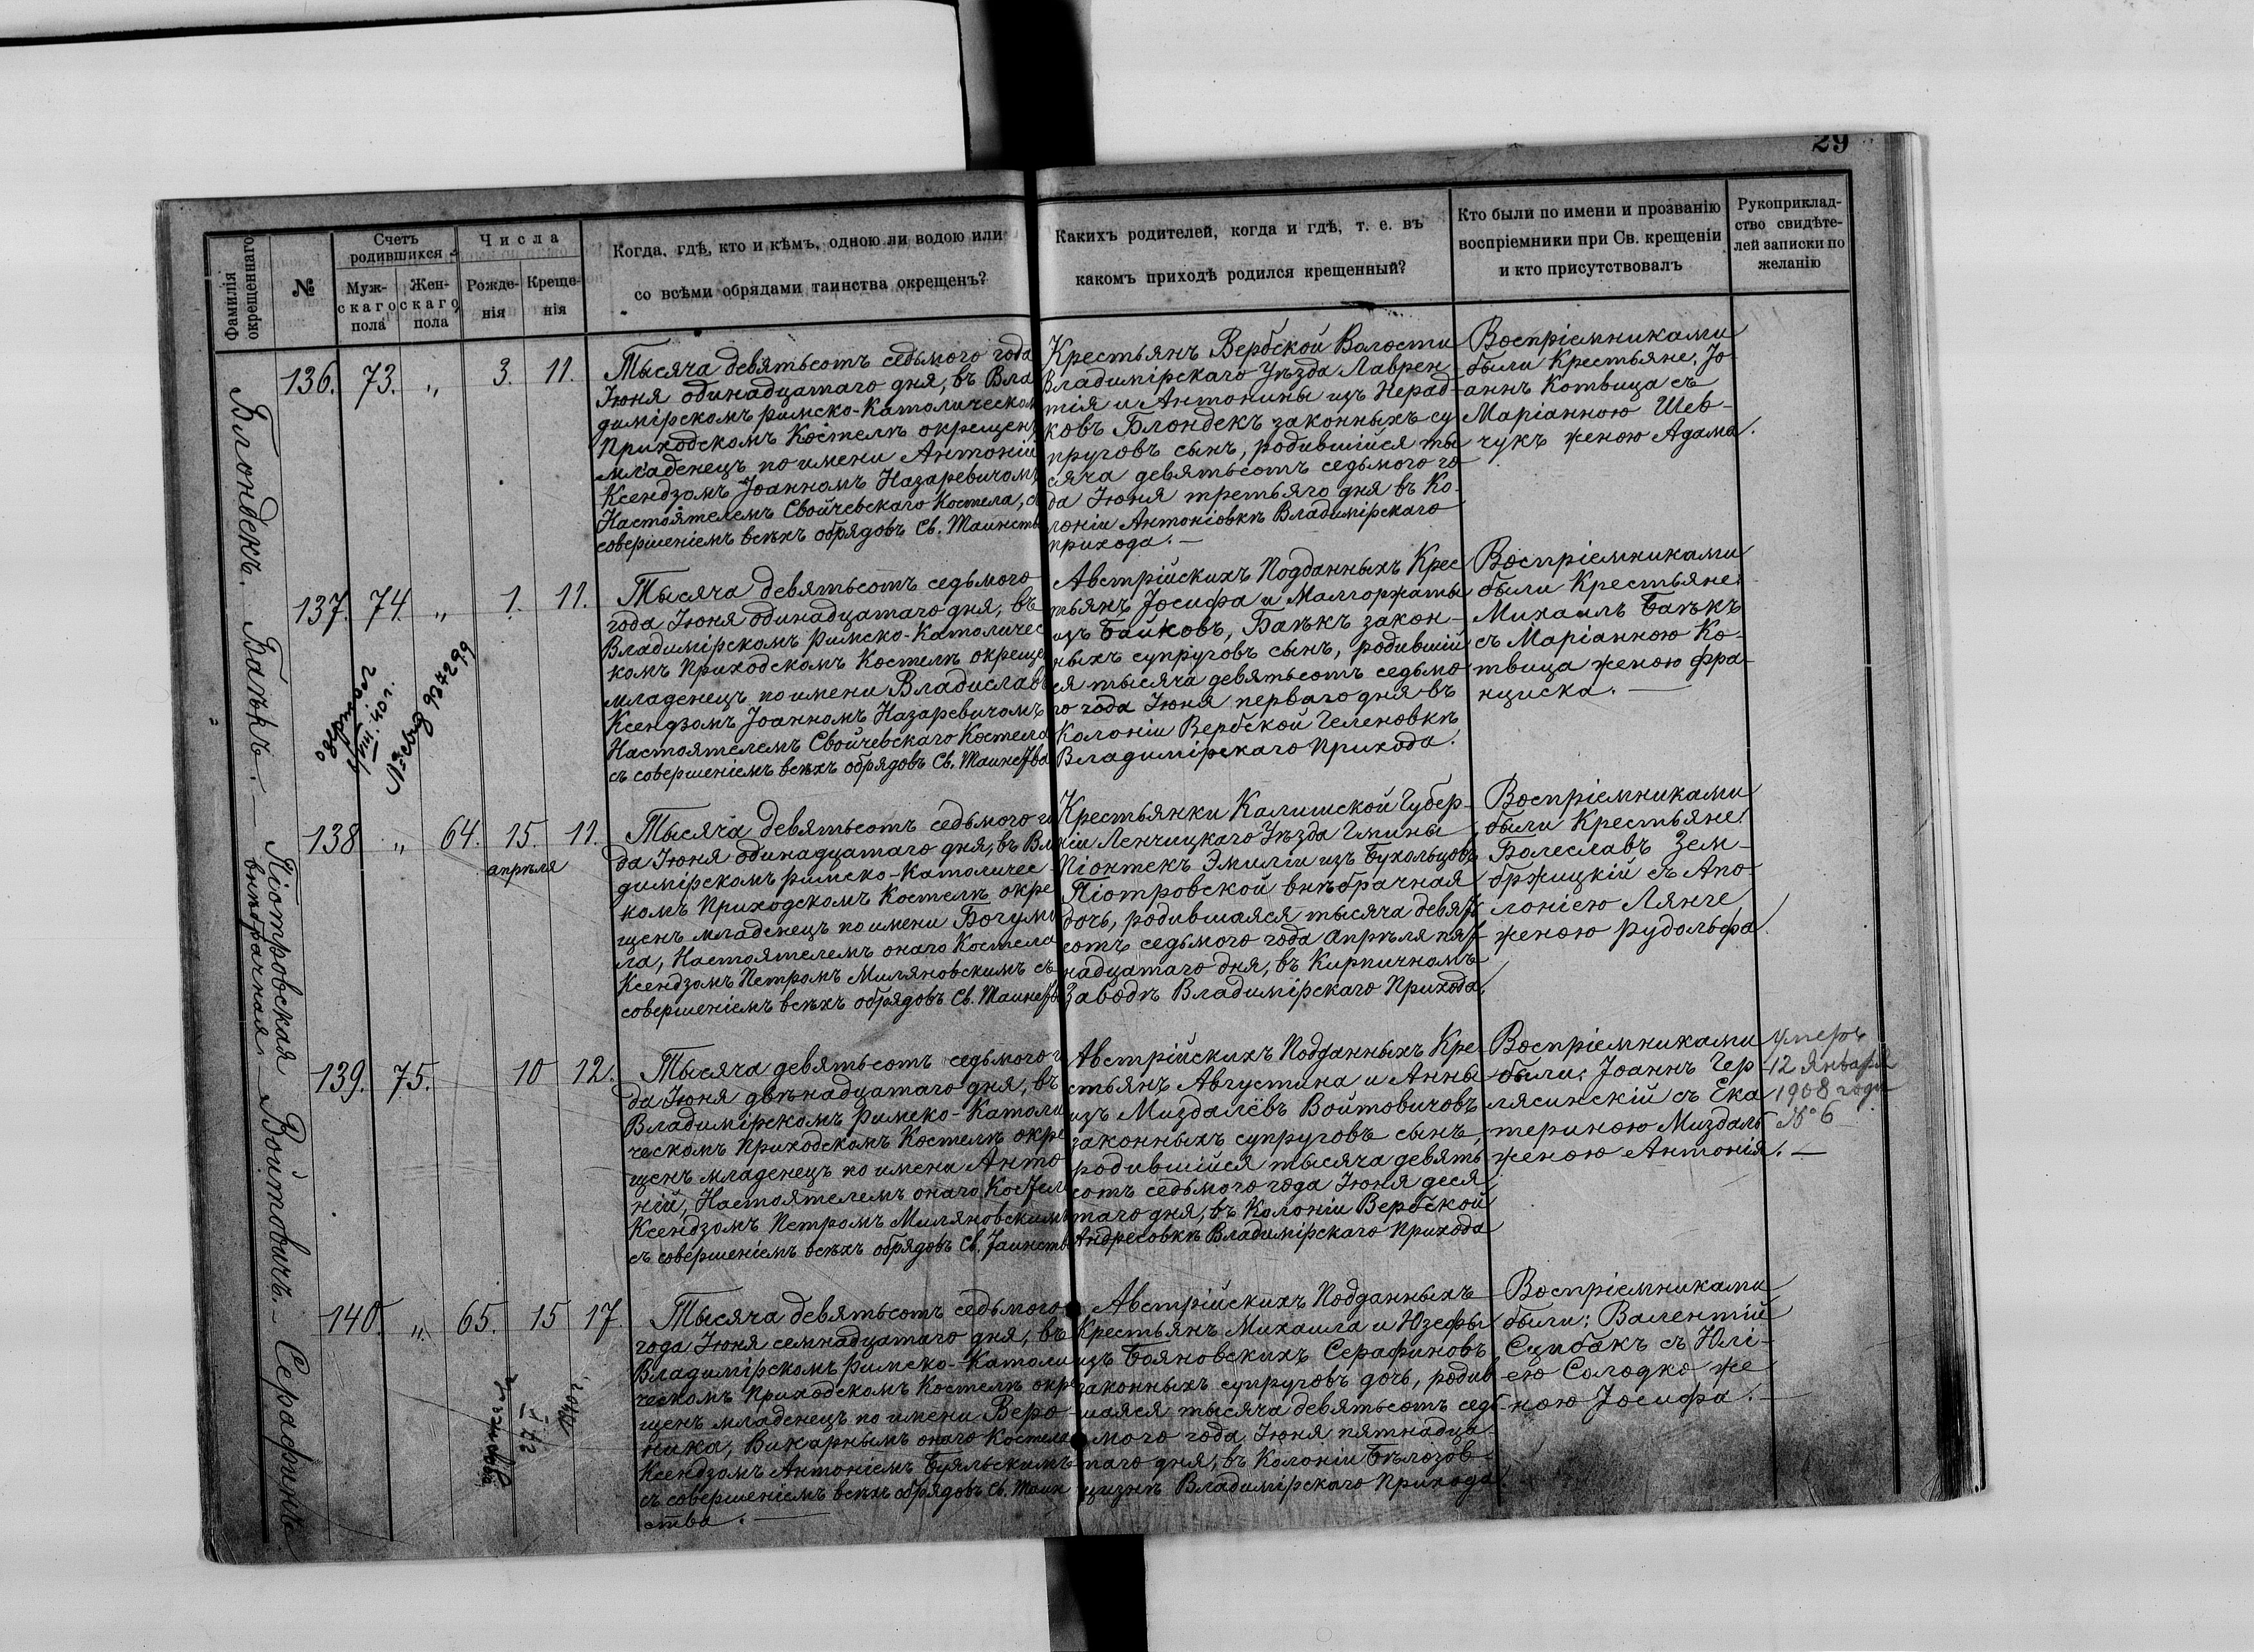 29
Фамилія
окрещеннаго
№
Счетъ
родившихся
Муж-
скаго
пола
Жен-
скаго
пола
Числа
Рожде-
нія
Креще-
нія
Когда, гдѣ, кто и кѣмъ, одною ли водою или
со всѣми обрядами таинства окрещенъ?
Какихъ родителей, когда и гдѣ, т. е. въ
какомъ приходѣ родился крещенный?
Кто были по имени и прозванію
воспріемники при Св. крещеніи
и кто присутствовалъ
Рукоприклад-
ство свидѣте-
лей записки по
желанію
Блондекъ.
136. 73. „ 3. 11.
Тысяча девятьсотъ седьмого года
Іюня одинадцатаго дня, въ Вла
димірскомъ римско-Католическом
Приходскомъ Костелѣ окрещенъ
младенецъ по имени Антоній
Ксендзомъ Іоанномъ Назаревичомъ
Настоятелемъ Свойчевскаго Костела, съ
совершеніемъ всѣхъ обрядовъ Св. Таинств
Крестьянъ Вербской Волости
Владимірскаго Уѣзда Лаврен
тія и Антонины изъ Нерад-
ковъ Блондекъ законныхъ су
пруговъ сынъ, родившійся ты
сяча девятьсотъ седьмого го
да Іюня третьяго дня въ Ко-
лоніи Антоніовкѣ Владимірскаго
прихода. —
Воспріемниками
были Крестьяне: Іо-
аннъ Котвица съ
Маріанною Шев-
чукъ женою Адама.
Батѣкъ. —
137. 74. „ 1. 11.
Тысяча девятьсотъ седьмого
года Іюня одинадцатаго дня, въ
Владимірскомъ Римско-Католичес
комъ Приходскомъ Костелѣ окреще
младенецъ по имени Владиславъ
Ксендзомъ Іоанномъ Назаревичомъ
Настоятелемъ Свойчевскаго Костела
съ совершеніемъ всѣхъ обрядовъ Св. Таинства
Австрійскихъ Подданныхъ Крес
тьянъ Іосифа и Малгоржаты
изъ Байковъ, Батѣкъ закон-
ныхъ супруговъ сынъ, родивший
ся тысяча девятьсотъ седьмо
го года Іюня перваго дня въ
Колоніи Вербской Геленовкѣ
Владимірскаго Прихода.
Воспріемниками
были Крестьяне:
Михаилъ Батѣкъ
съ Маріанною Ко-
твица женою Фра-
нциска. —
927299
Піотровская
внѣбрачная.
138 „ 64. 15. 11.
апрѣля
Тысяча девятьсотъ седьмого го
да Іюня одинадцатаго дня, въ Вла
димірскомъ римско-Католичес-
комъ Приходскомъ Костелѣ окре
щенъ младенецъ по имени Богуми
ла, Настоятелемъ онаго Костела
Ксендзомъ Петромъ Миляновскимъ съ
совершеніемъ всѣхъ обрядовъ Св. Таинств
Крестьянки Калишской Губер-
ніи Ленчицкаго Уѣзда Гмины
Піонтекъ Эмиліи изъ Бухольцовъ
Піотровской внѣбрачная
дочь, родившаяся тысяча девять
сотъ седьмого года Апрѣля пят-
надцатаго дня, въ Кирпичномъ
Заводѣ Владимірскаго Прихода
Воспріемниками
были Крестьяне:
Болеславъ Зем-
бржицкій съ Апо-
лоніею Лянге
женою Рудольфа.
Войтовичъ. —
139. 75. 10 12.
Тысяча девятьсотъ седьмого г
да Іюня двѣнадцатаго дня, въ
Владимірскомъ Римско-Католи
ческомъ Приходскомъ Костелѣ окре
щенъ младенецъ по имени Анто
ній, Настоятелемъ онаго Костела
Ксендзомъ Петромъ Миляновскимъ
съ совершеніемъ всѣхъ обрядовъ Св. Таинств
Австрійскихъ Подданныхъ Кре-
стьянъ Августина и Анны
изъ Миздалёвъ Войтовичовъ
законныхъ супруговъ сынъ,
родившійся тысяча девять
сотъ седьмого года Іюня деся
таго дня, въ Колоніи Вербской
Андресовкѣ Владимірскаго Прихода
Воспріемниками
были: Іоаннъ Чер-
лясинскій съ Ека
териною Миздаль
женою Антонія. —
Умеръ
12 Января
1908 года
№ 6
Серафинъ
140. „ 65. 15 17.
Тысяча девятьсотъ седьмого
года Іюня семнадцатаго дня, въ
Владимірскомъ Римско-Католи
ческомъ Приходскомъ Костелѣ окре
щенъ младенецъ по имени Веро-
ника, Викарнымъ онаго Костела
Ксендзомъ Антоніемъ Буяльскимъ
съ совершеніемъ всѣхъ обрядовъ Св. Таин
ства. —
Австрійскихъ Подданныхъ
Крестьянъ Михаила и Юзефы
изъ Бояновскихъ Серафиновъ
законныхъ супруговъ дочь, родив
шаяся тысяча девятьсотъ седь
мого года Іюня пятнадца-
таго дня, въ Колоніи Бѣлозов-
щизнѣ Владимірскаго Прихода.
Воспріемниками
были: Валентій
Сцибакъ съ Юлі-
ею Солодко же
ною Іосифа. —